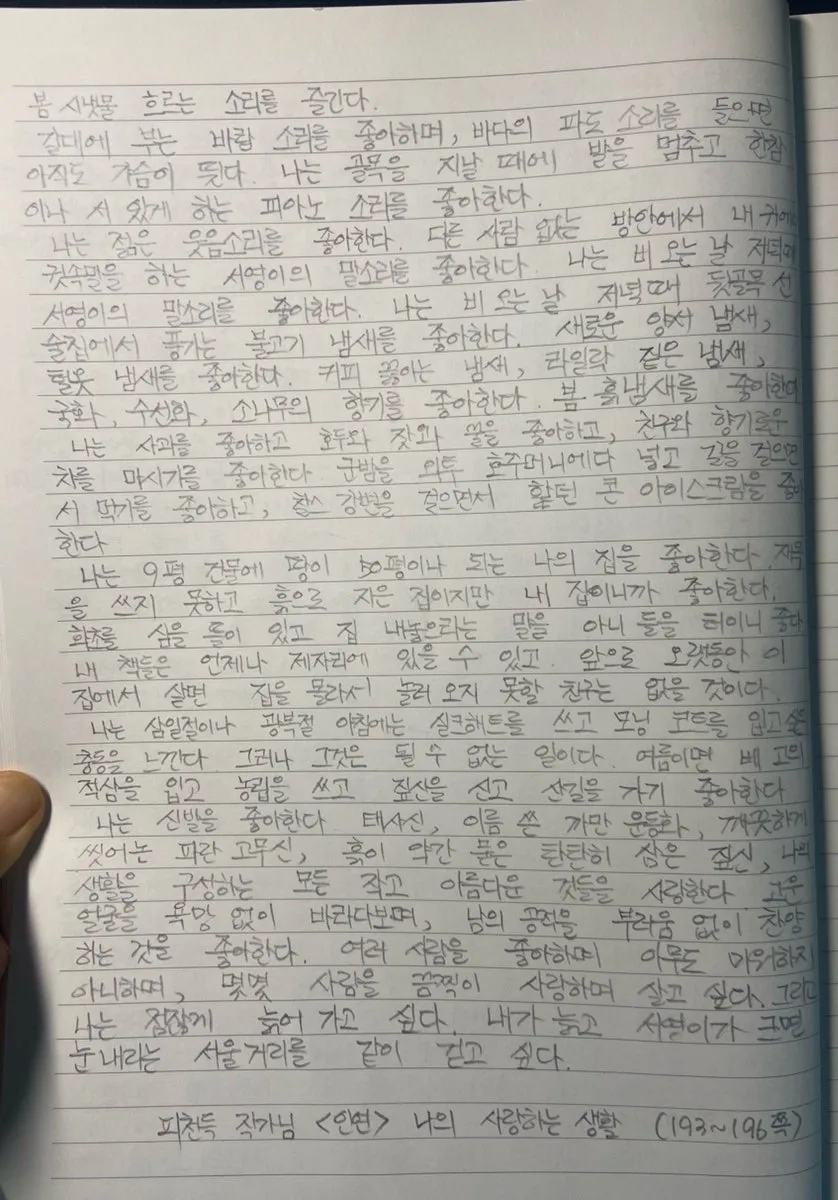 봄 시냇물 흐르는 소리를 즐긴다.
갈대에 부는 바람 소리를 좋아하며, 바다의 파도 소리를 들으면
아직도 가슴이 뛴다. 나는 골목을 지날 때에 발을 멈추고 한참
이나 서 있게 하는 피아노 소리를 좋아한다.
나는 젊은 웃음소리를 좋아한다. 다른 사람 없는 방안에서 내 귀에
귓속말을 하는 서영이의 말소리를 좋아한다. 나는 비 오는 날 저녁때
서영이의 말소리를 좋아한다. 나는 비 오는 날 저녁때 뒷골목 선
술집에서 풍기는 불고기 냄새를 좋아한다. 새로운 양서 냄새,
털옷 냄새를 좋아한다. 커피 끓이는 냄새, 라일락 짙은 냄새,
국화, 수선화, 소나무의 향기를 좋아한다. 봄 흙냄새를 좋아한다
나는 사과를 좋아하고 호두와 잣과 꿀을 좋아하고, 친구와 향기로운
차를 마시기를 좋아한다. 군밤을 외투 호주머니에다 넣고 길을 걸으면
서 먹기를 좋아하고, 찰스 강변을 걸으면서 핥던 콘 아이스크림을 좋아
한다
나는 9평 건물에 땅이 50평이나 되는 나의 집을 좋아한다. 재목
을 쓰지 못하고 흙으로 지은 집이지만 내 집이니까 좋아한다.
화초를 심을 뜰이 있고 집 내놓으라는 말을 아니 들을 터이니 좋다
내 책들은 언제나 제자리에 있을 수 있고. 앞으로 오랫동안 이
집에서 살면 집을 몰라서 놀러 오지 못할 친구는 없을 것이다.
나는 삼일절이나 광복절 아침에는 실크해트를 쓰고 모닝 코트를 입고 싶은
충동을 느낀다. 그러나 그것은 될 수 없는 일이다. 여름이면 베 고의
적삼을 입고 농립을 쓰고 짚신을 신고 산길을 가기 좋아한다
나는 신발을 좋아한다 태사신, 이름 쓴 까만 운동화, 깨끗하게
씻어논 파란 고무신, 흙이 약간 묻은 탄탄히 삼은 짚신, 나의
생활을 구성하는 모든 작고 아름다운 것들을 사랑한다 고운
얼굴을 욕망 없이 바라다보며, 남의 공적을 부러움 없이 찬양
하는 것을 좋아한다. 여러 사람을 좋아하며 아무도 미워하지
아니하며, 몇몇 사람을 끔찍이 사랑하며 살고 싶다. 그리고
나는 점잖게 늙어 가고 싶다. 내가 늙고 서영이가 크면
눈 내리는 서울 거리를 같이 걷고 싶다.
피천득 작가님 <인연> 나의 사랑하는 생활 (193~196쪽)